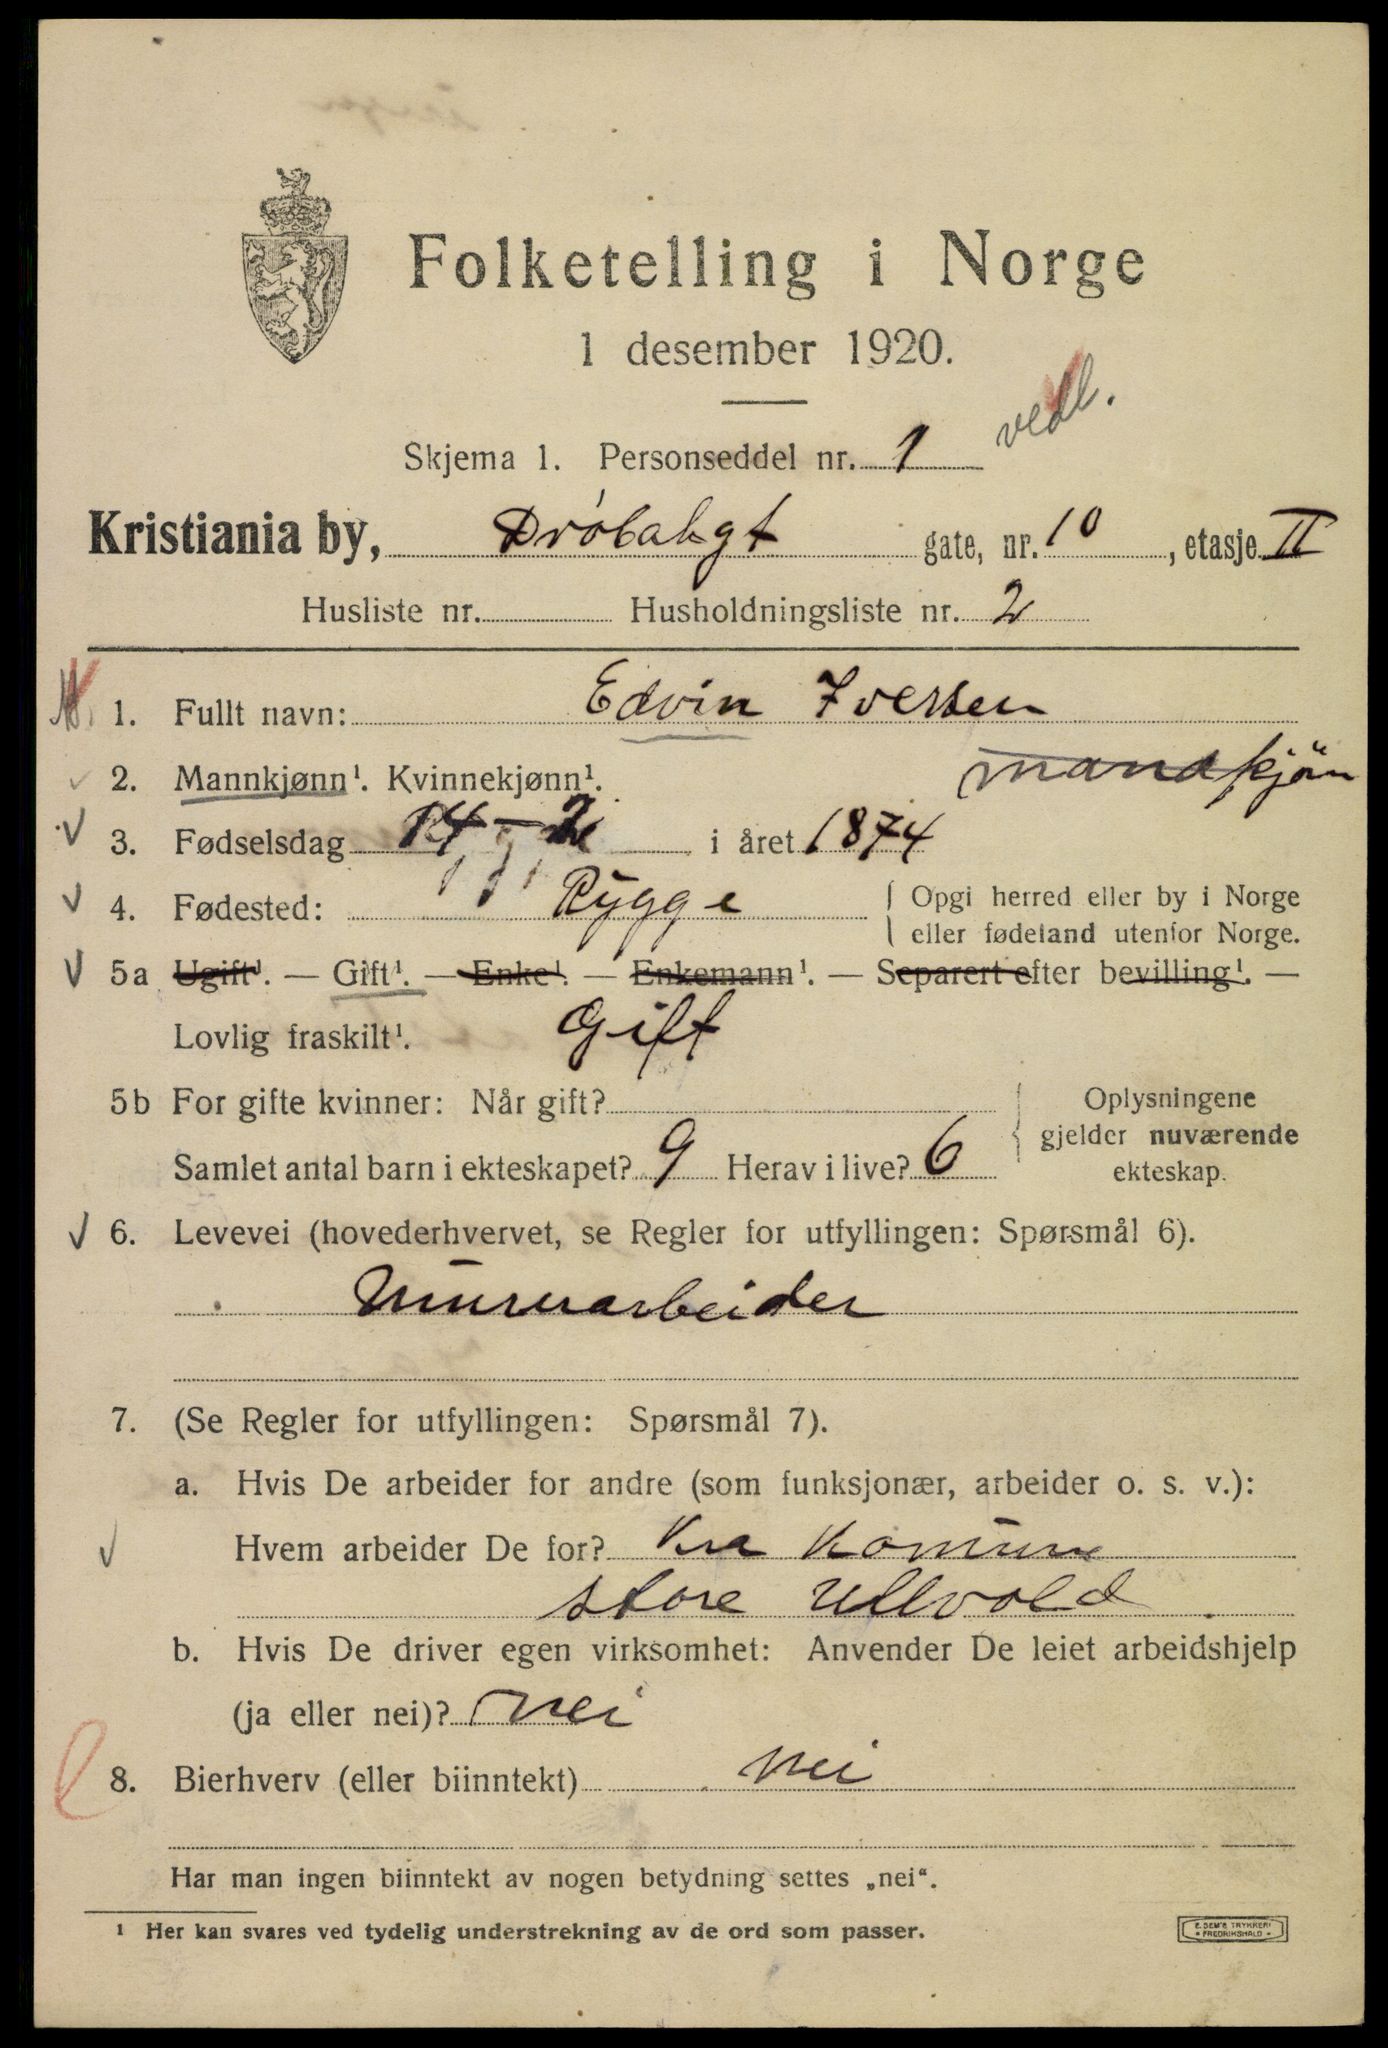 Folketelling i Norge
1 desember 1920.
vedl.
Skjema 1. Personseddel nr. 1
Kristiania by, Dröbakgt gate, nr. 10, etasje II
Husliste nr. Husholdningsliste nr. 2
1. Fullt navn: Edvin Iversen
2. Mannkjønn¹. Kvinnekjønn¹. mandkjön
3. Fødselsdag 14-2 i året 1874
4. Fødested: Rygge { Opgi herred eller by i Norge
eller fødeland utenfor Norge.
5a Ugift¹. — Gift¹. — Enke¹. — Enkemann¹. — Separert efter bevilling¹. —
Lovlig fraskilt¹. Gift
5b For gifte kvinner: Når gift? Oplysningene
gjelder nuværende
Samlet antal barn i ekteskapet? 9 Herav i live? 6 ekteskap.
6. Levevei (hovederhvervet, se Regler for utfyllingen: Spørsmål 6).
Murerarbeider
7. (Se Regler for utfyllingen: Spørsmål 7).
a. Hvis De arbeider for andre (som funksjonær, arbeider o. s. v.):
Hvem arbeider De for? Kra Komune
store Ullvold
b. Hvis De driver egen virksomhet: Anvender De leiet arbeidshjelp
(ja eller nei)? nei
8. Bierhverv (eller biinntekt) nei
Har man ingen biinntekt av nogen betydning settes „nei“.
¹ Her kan svares ved tydelig understrekning av de ord som passer.
E. SEM'S TRYKKERI
FREDRIKSHALD